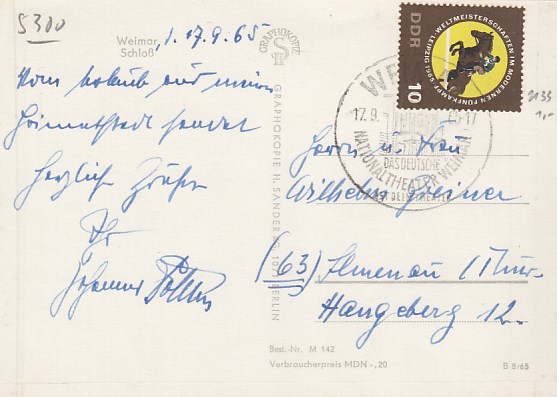 5300
Weimar,
Schloß
d. 17.9.65
Vom Urlaub aus meiner
Heimatstadt sendet
herzliche Grüße
Ihr
Johannes
GRAPHOKOPIE
GRAPHOKOPIE H. SANDER KG 107 BERLIN
DDR
WELTMEISTERSCHAFTEN IM MODERNEN FÜNFKAMPF 1965 LEIPZIG
10
WEIMAR
17.9.
-17
DAS DEUTSCHE
NATIONALTHEATER WEIMAR
1133
1,-
Herrn u. Frau
Wilhelm Greiner
(63) Ilmenau / Thür.
Hangeberg 12.
Best.-Nr. M 142
Verbraucherpreis MDN -,20
B 8/65